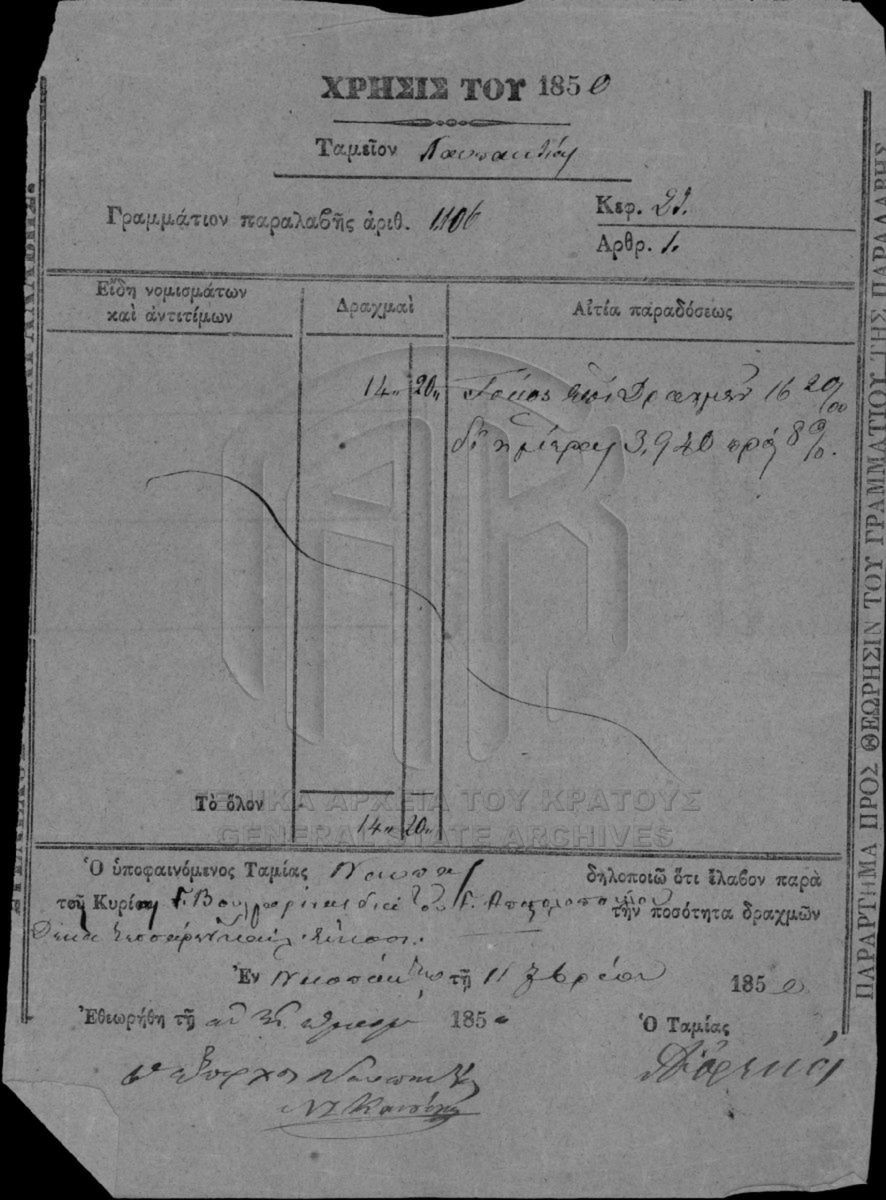 ΧΡΗΣΙΣ ΤΟΥ 1850
Ταμεῖον Ναυπακτίας
Γραμμάτιον παραλαβῆς ἀριθ. 1106
Κεφ. 21.
Αρθρ. 1.
Εἴδη νομισμάτων
καὶ ἀντιτίμων
Δραχμαὶ
Αἰτία παραδόσεως
14 " 20 " Τόκος ἐπὶ Δραχμῶν 16 20/00
δι' ἡμέρας 3,940 πρὸς 8 %.
ΓΕΝΙΚΑ ΑΡΧΕΙΑ ΤΟΥ ΚΡΑΤΟΥΣ
GENERAL STATE ARCHIVES
Τὸ ὅλον 14 " 20 "
Ὁ ὑποφαινόμενος Ταμίας Ναυπακ δηλοποιῶ ὅτι ἔλαβον παρὰ
τοῦ Κυρίου Γ. διὰ τοῦ Γ. τὴν ποσότητα δραχμῶν
Δέκα τεσσάρων καὶ εἴκοσι.
Ἐν Ναυπάκτῳ τῇ 11 7βρίου 1850
Ἐθεωρήθη τῇ 1850
Ὁ Ταμίας
Ὁ Ἔπαρχος Ναυπακτίας
ΠΑΡΑΡΤΗΜΑ ΠΡΟΣ ΘΕΩΡΗΣΙΝ ΤΟΥ ΓΡΑΜΜΑΤΙΟΥ ΤΗΣ ΠΑΡΑΛΑΒΗΣ